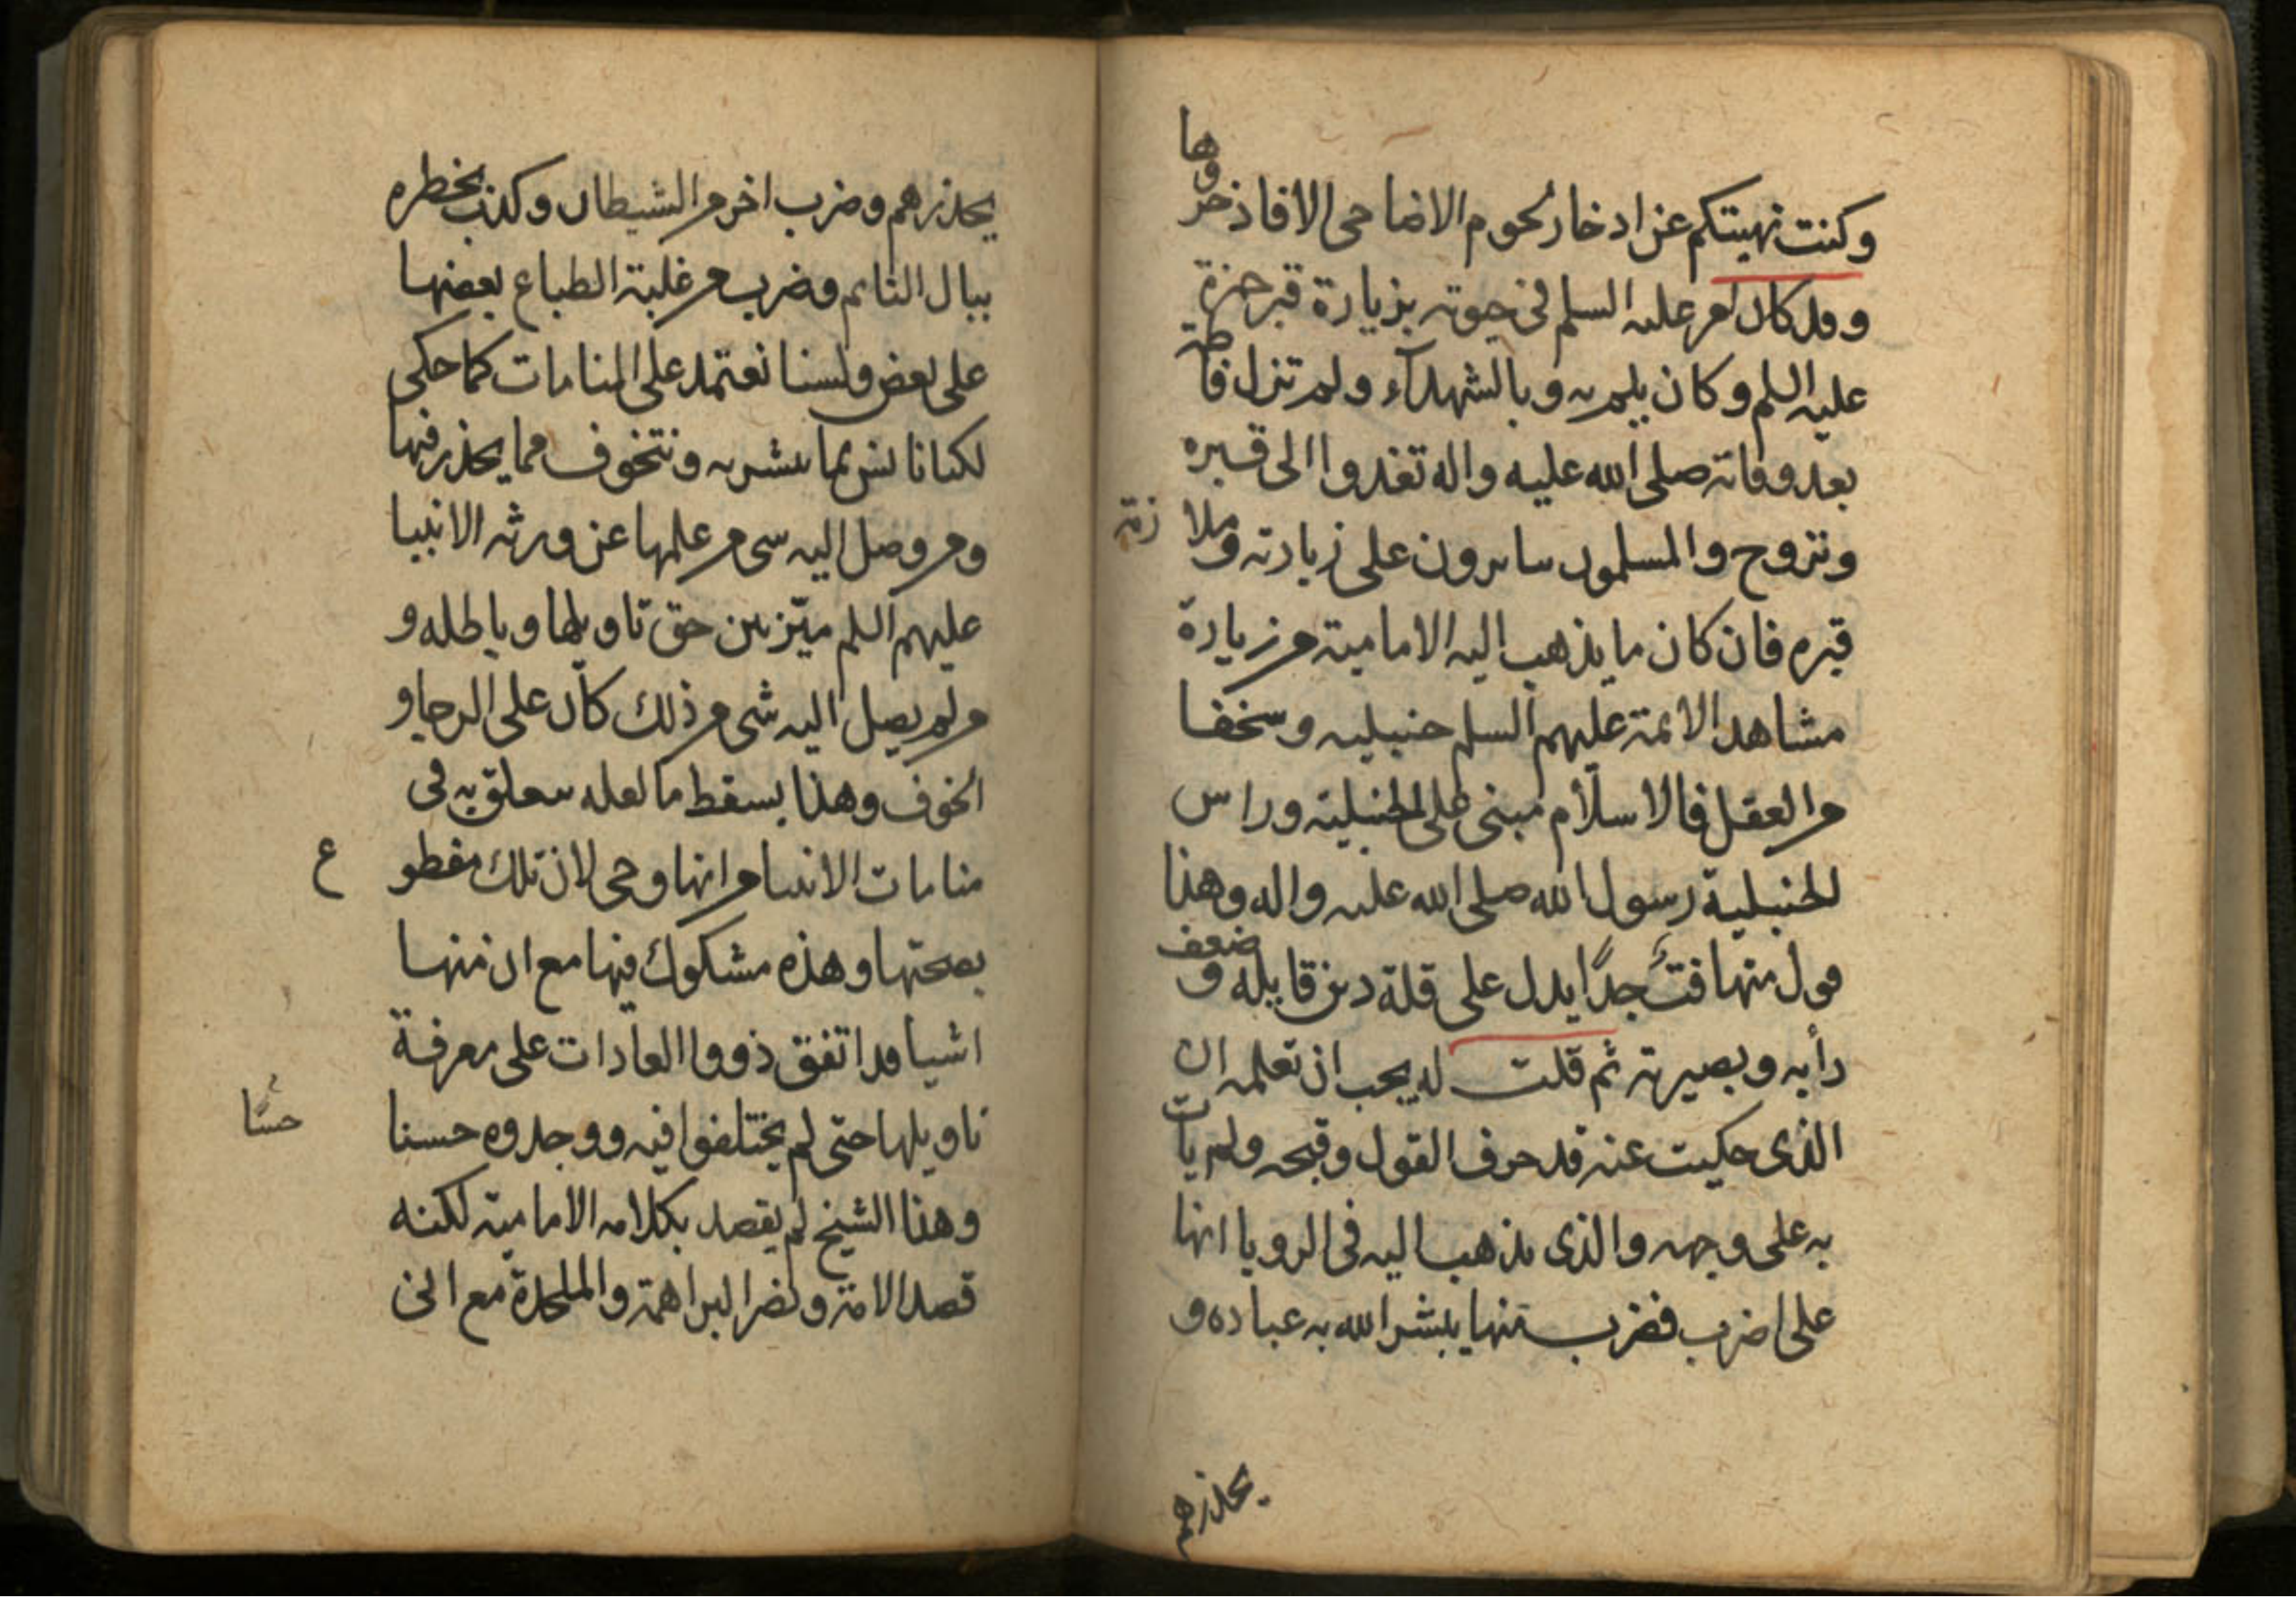 وكنت نهيتكم عن ادخار لحوم الاضاحى الا فاذخروها
وقد كان امر عليه السلم فى حيوته بزيارة قبر حمزة
عليه السلم وكان يلم به وبالشهدآء ولم تزل فاطمة
بعد وفاته صلى الله عليه واله تغدوا الى قبره
وتروح والمسلمون سابرون على زيارته وملازمة
قبره فان كان ما يذهب اليه الامامية من زيارة
مشاهد الائمة عليهم السلم حنبلية وسخفا
من العقل فالاسلام مبنى على الحنبلية وراس
الحنبلية رسول الله صلى الله عليه واله وهذا
قول متهافت جدا يدل على قلة دين قايله وضعف
رأيه وبصيرته ثم قلت له يجب ان تعلمه ان
الذى حكيت عنه قد حرف القول وقبحه ولم يات
به على وجهه والذى يذهب اليه فى الرويا انها
على اضرب فضرب منها يبشر الله به عباده و
يحذرهم
يحذرهم وضرب اخر من الشيطان وكذب يخطره
ببال النائم وضرب من غلبة الطباع بعضها
على بعض ولسنا نعتمد على المنامات كما حكى
لكنا نانس بما يبشر به ونتخوف مما يحذر فيها
ومن وصل اليه شى من علمها عن ورثه الانبيا
عليهم السلم ميّز بين حق تاويلها وباطله و
من لم يصل اليه شى من ذلك كان على الرجا و
الخوف وهذا يسقط ما لعله سيعلق به فى
منامات الانبيا من انها وحى لان تلك مقطوع
بصحتها وهذه مشكوك فيها مع ان منها
اشيا قد اتفق ذووا العادات على معرفة
تاويلها حتى لم يختلفوا فيه ووجدوه حسنا
حسّا
وهذا الشيخ لم يقصد بكلامه الامامية لكنه
قصد الامة ونصر البراهمة والملحدة مع انى